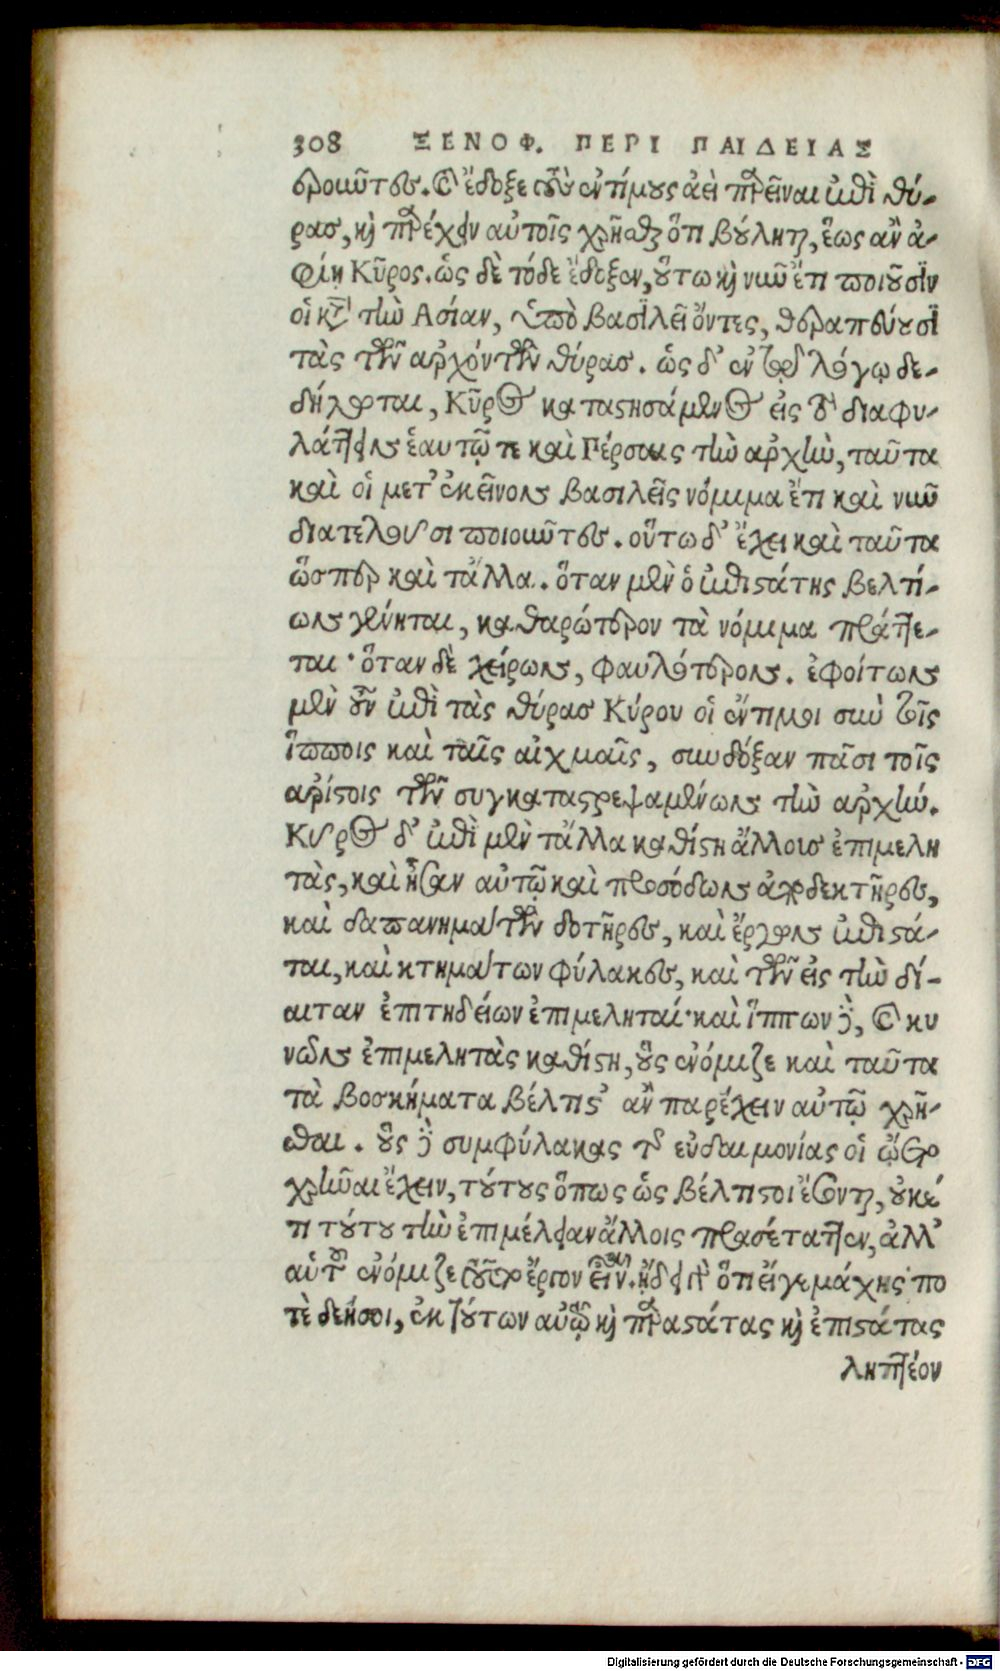 308 ΞΕΝΟΦ. ΠΕΡΙ ΠΑΙΔΕΙΑΣ
φρονοῦντες. καὶ ἔδοξε τοὺς ἐντίμους ἀεὶ παρεῖναι ἐπὶ θύ-
ρας, καὶ παρέχειν αὐτοῖς χρῆσθαι ὅτι βούληται, ἕως ἂν ἀ-
φίη Κῦρος. ὡς δὲ τόδε ἔδοξεν, οὕτω καὶ νῦν ἔτι ποιοῦσιν
οἱ κατὰ τὴν Ασίαν, ὑπὸ βασιλεῖ ὄντες, θεραπεύουσι
τὰς τῶν αρχόντων θύρας. ὡς δ' ἐν τῷ λόγῳ δε-
δήλωται, Κῦρος καταστησάμενος εἰς τὸ διαφυ-
λάττειν ἑαυτῷ τε καὶ Πέρσαις τὴν αρχὴν, ταῦτα
καὶ οἱ μετ' ἐκεῖνον βασιλεῖς νόμιμα ἔτι καὶ νῦν
διατελοῦσι ποιοῦντες. οὕτω δ' ἔχει καὶ ταῦτα
ὥσπερ καὶ τἄλλα. ὅταν μὲν ὁ ἐπιστάτης βελτί-
ων γένηται, καθαρώτερον τὰ νόμιμα πράττε-
ται· ὅταν δὲ χείρων, φαυλότερον. ἐφοίτων
μὲν οὖν ἐπὶ τὰς θύρας Κύρου οἱ ἔντιμοι σὺν τοῖς
ἵπποις καὶ ταῖς αἰχμαῖς, συνδόξαν πᾶσι τοῖς
αρίστοις τῶν συγκαταστρεψαμένων τὴν αρχήν.
Κῦρος δ' ἐπὶ μὲν τἄλλα καθίστη ἄλλους ἐπιμελη
τὰς, καὶ ἦσαν αὐτῷ καὶ προσόδων ἀποδεκτῆρες,
καὶ δαπανημάτων δοτῆρες, καὶ ἔργων ἐπιστά-
ται, καὶ κτημάτων φύλακες, καὶ τῶν εἰς τὴν δί-
αιταν ἐπιτηδείων ἐπιμεληταί· καὶ ἵππων δὲ, καὶ κυ
νῶν ἐπιμελητὰς καθίστη, οὓς ἐνόμιζε καὶ ταῦτα
τὰ βοσκήματα βέλτιστ' ἂν παρέχειν αὐτῷ χρῆ-
σθαι. οὓς δὲ συμφύλακας τῆς εὐδαιμονίας οἱ ᾤετο
χρῆναι ἔχειν, τούτους ὅπως ὡς βέλτιστοι ἔσονται, οὐκέ
τι τούτου τὴν ἐπιμέλειαν ἄλλοις προσέταττεν, ἀλλ'
αὑτοῦ ἐνόμιζε τοῦτο ἔργον εἶναι. ᾔδει γὰρ ὅτι εἴγε μάχης πο
τὲ δεήσοι, ἐκ τούτων αὐτῷ καὶ παραστάτας καὶ ἐπιστάτας
ληπτέον
Digitalisierung gefördert durch die Deutsche Forschungsgemeinschaft - DFG